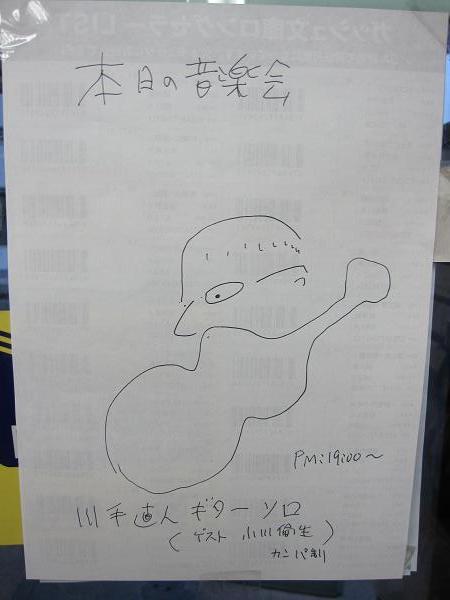 本日の音楽会
PM:19:00〜
川手直人 ギターソロ
(ゲスト 小川倫生)
カンパ制